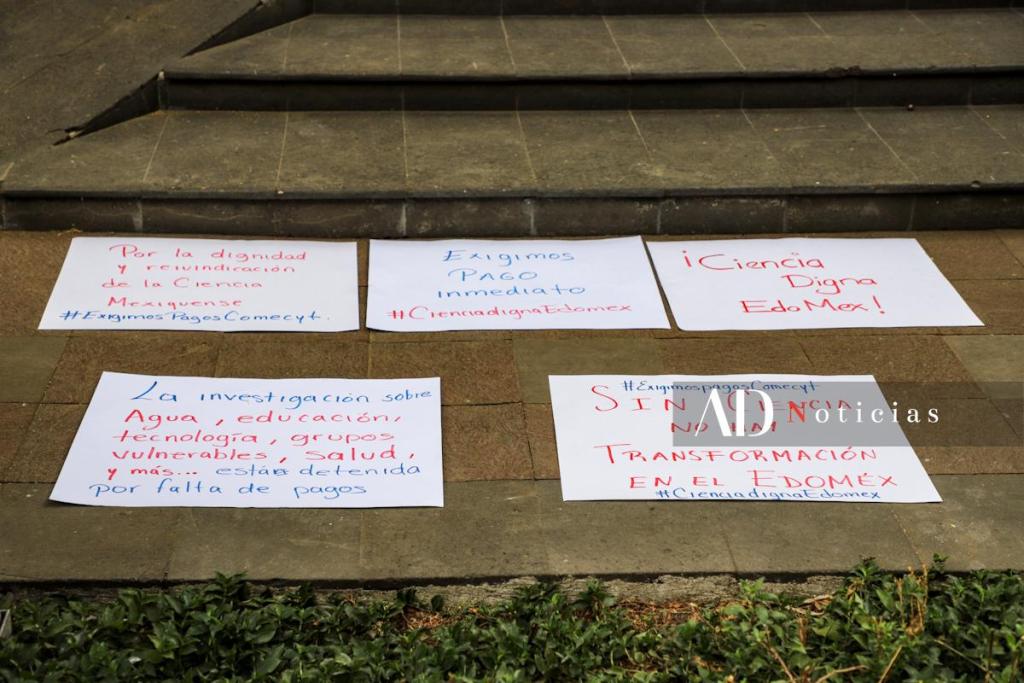 Por la dignidad
y reivindicación
de la Ciencia
Mexiquense
#ExigimosPagosComecyt.
Exigimos
PAGO
inmediato
#CienciadignaEdomex
¡Ciencia
Digna
EdoMex!
La investigación sobre
Agua, educación,
tecnología, grupos
vulnerables, salud,
y más... están detenida
por falta de pagos
#ExigimospagosComecyt
SIN CIENCIA
NO HAY
TRANSFORMACIÓN
EN EL EDOMÉX
#CienciadignaEdomex
AD Noticias